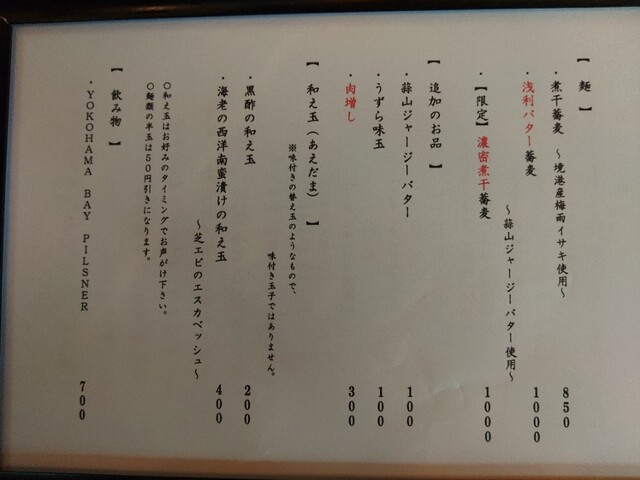 【 麺 】
・煮干蕎麦 ～境港産梅雨イサキ使用～ 850
・浅利バター蕎麦 1000
～蒜山ジャージーバター使用～
・【限定】濃密煮干蕎麦 1000
【 追加のお品 】
・蒜山ジャージーバター 100
・うずら味玉 100
・肉増し 300
【 和え玉(あえだま) 】
※味付きの替え玉のようなもので、
味付き玉子ではありません。
・黒酢の和え玉 200
・海老の西洋南蜜漬けの和え玉 400
～芝エビのエスカベッシュ～
○和え玉はお好みのタイミングでお声がけ下さい。
○麺類の半玉は50円引きになります。
【 飲み物 】
・YOKOHAMA BAY PILSNER 700